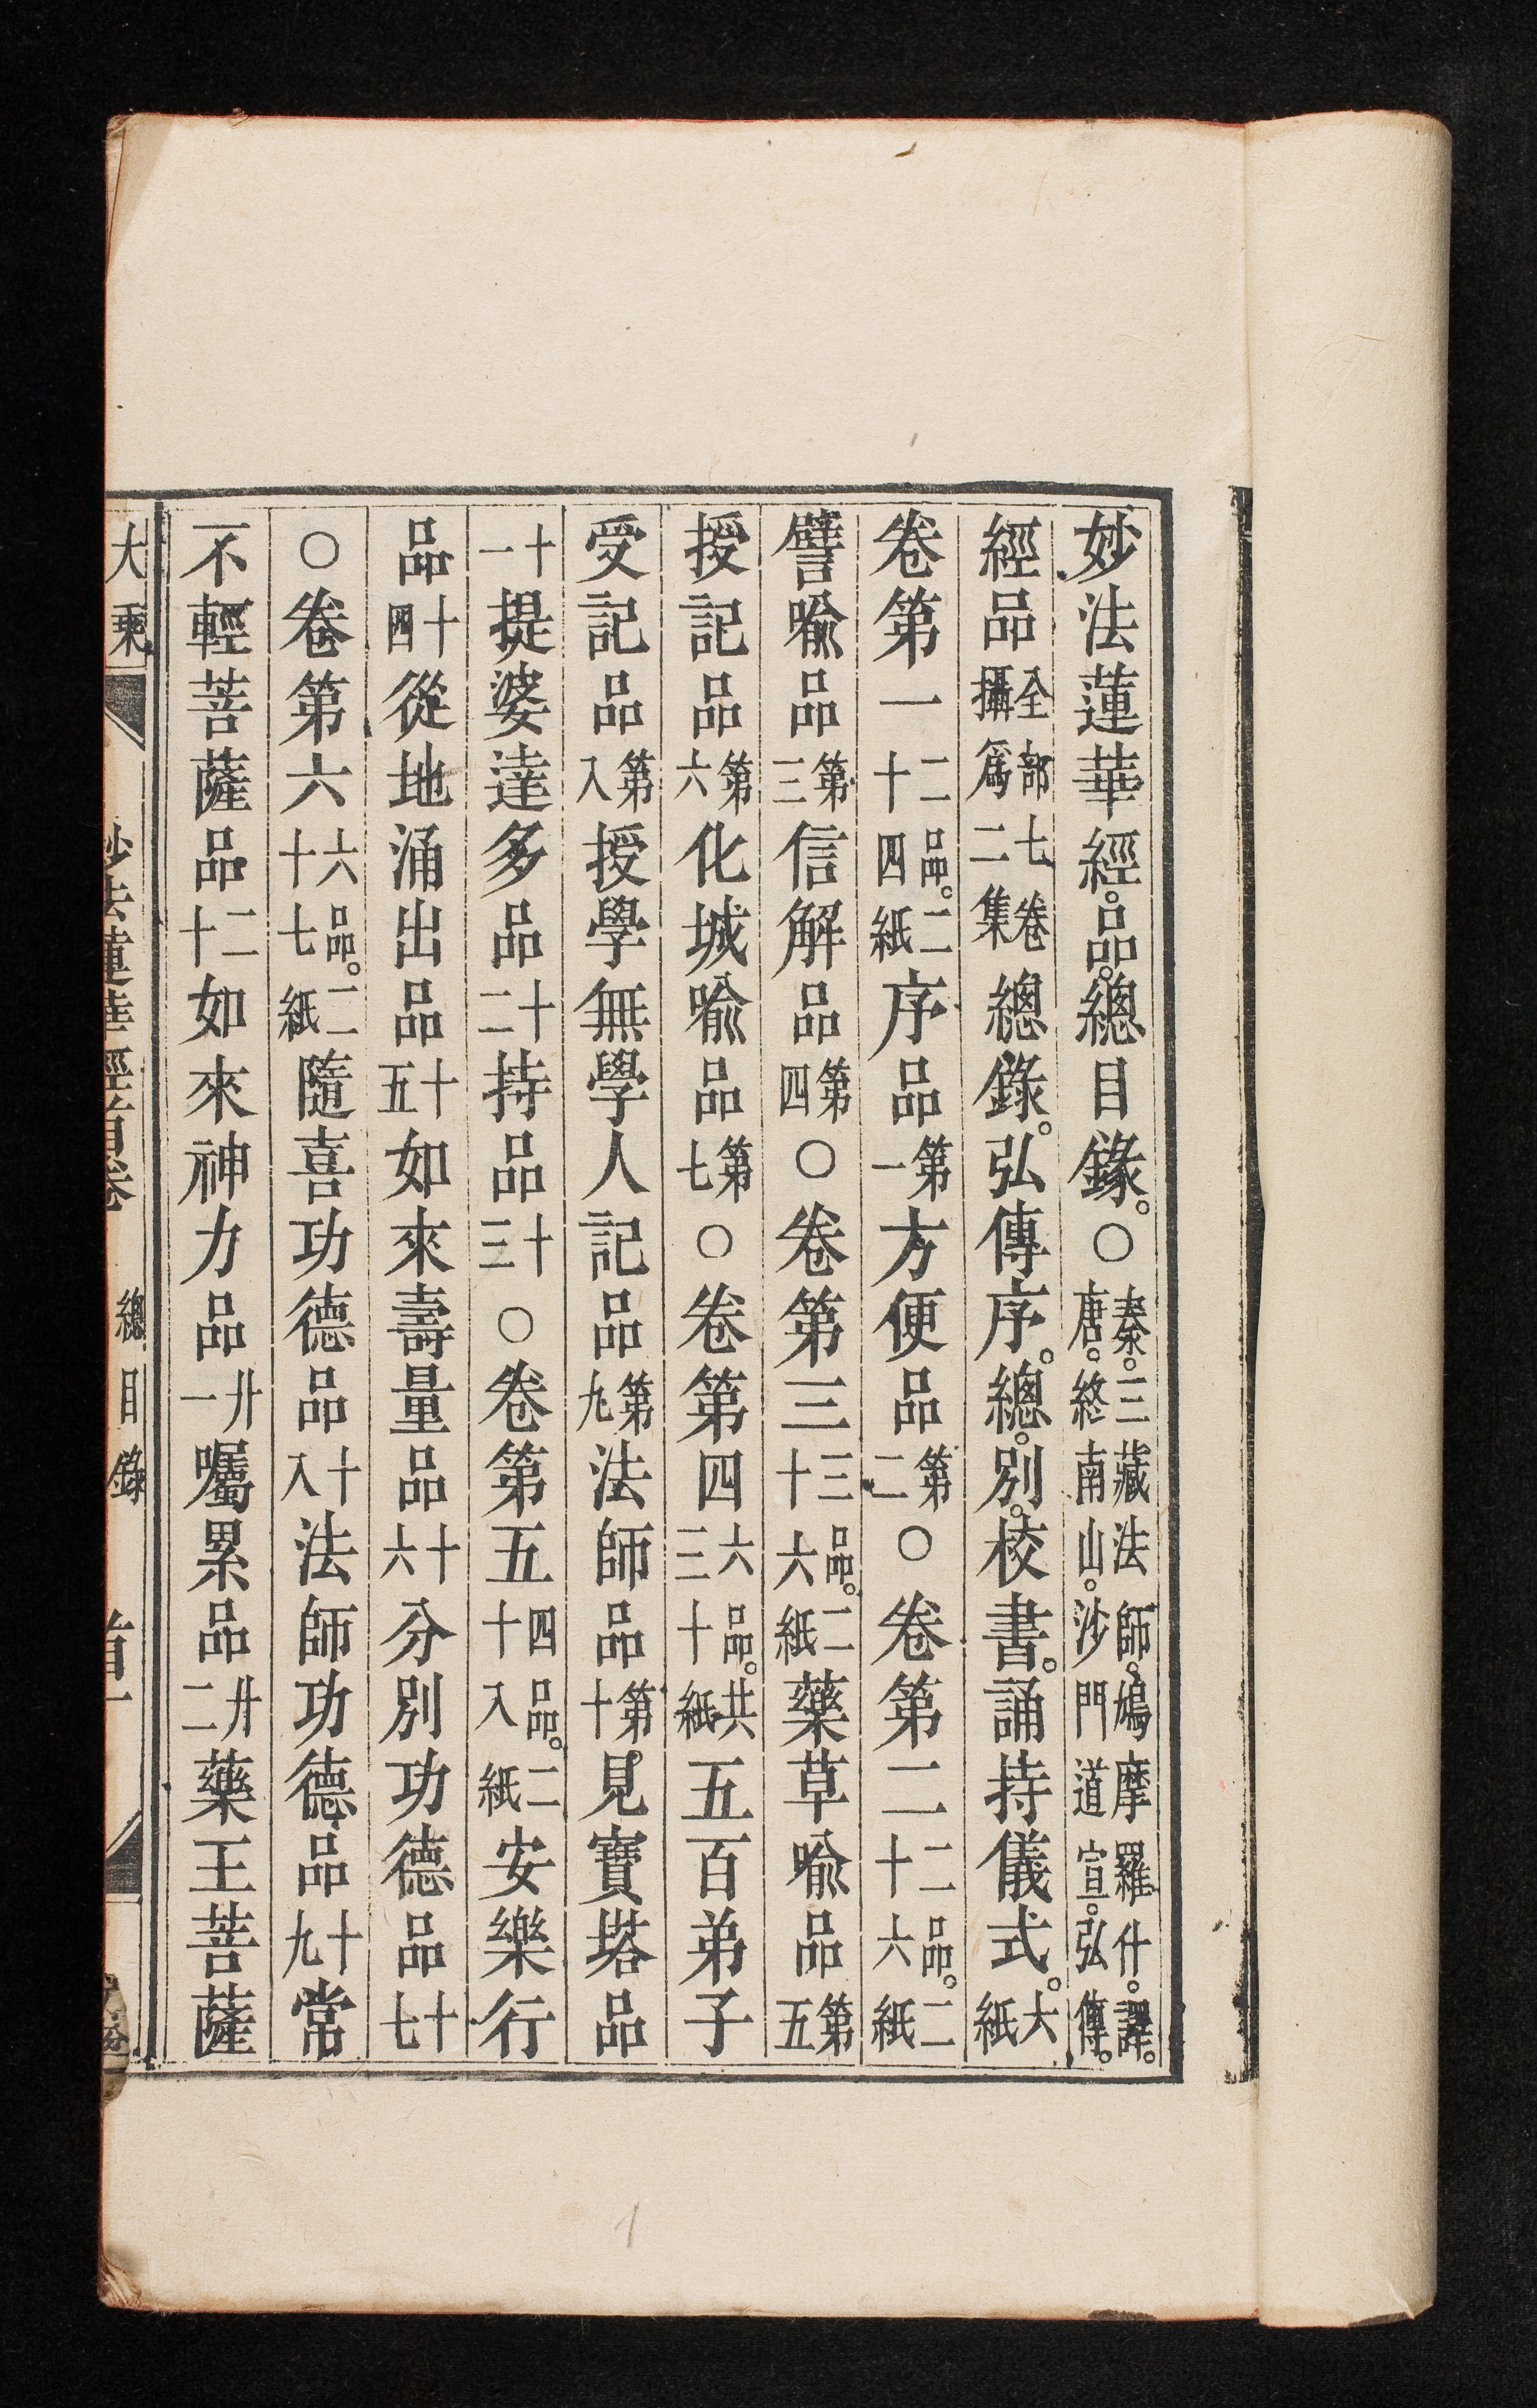 妙法蓮華經。品。總目錄。○秦。三藏法師。鳩摩羅什。譯。唐。終南山。沙門道宣。弘傳。
經品全部七卷攝爲二集總錄。弘傳序。總。別。校書。誦持儀式。大紙
卷第一二品。二十四紙序品第一方便品第二○卷第二二品。二十六紙
譬喻品第三信解品第四○卷第三三品。二十六紙藥草喻品第五
授記品第六化城喻品第七○卷第四六品。共三十紙五百弟子
受記品第八授學無學人記品第九法師品第十見寶塔品
十一提婆達多品十二持品十三○卷第五四品。二十八紙安樂行
品十四從地涌出品十五如來壽量品十六分別功德品十七
○卷第六六品。二十七紙隨喜功德品十八法師功德品十九常
不輕菩薩品二十如來神力品廿一囑累品廿二藥王菩薩
大乘 妙法蓮華經首卷 總目錄 首一